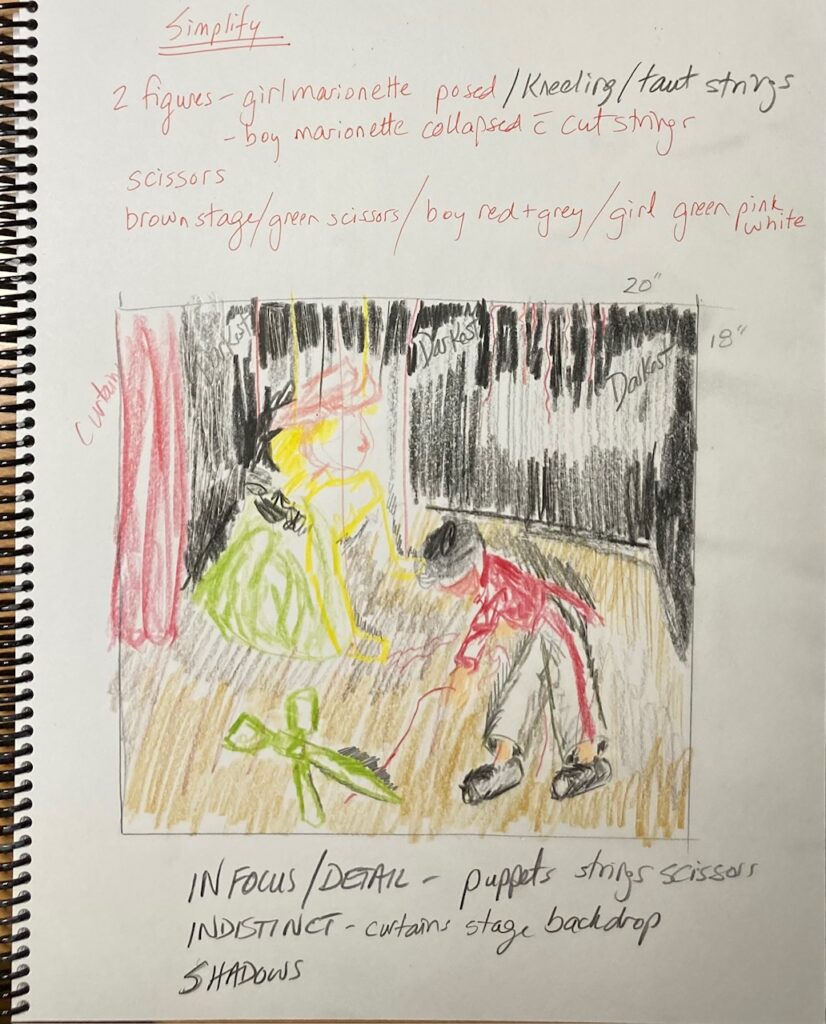 Simplify
2 figures - girl marionette posed / Kneeling / taut strings
- boy marionette collapsed c̄ cut strings
scissors
brown stage / green scissors / boy red + grey / girl green pink white
20"
18"
Curtain
Darkest
Darkest
Darkest
IN FOCUS / DETAIL - puppets strings scissors
INDISTINCT - curtains stage backdrop
SHADOWS